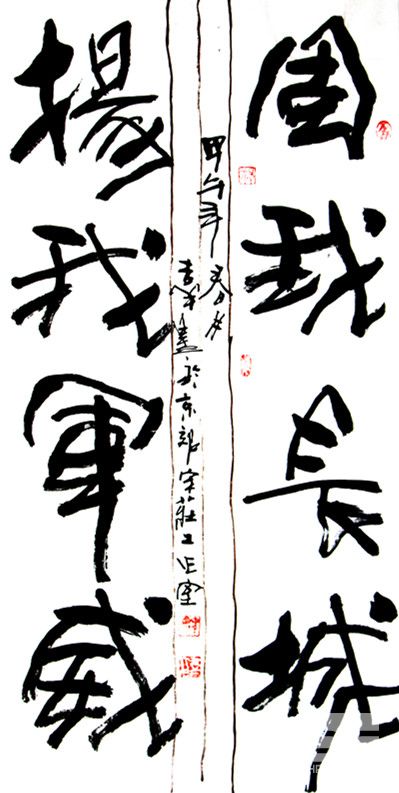 固我長城
甲午年春月
書於京郊宋莊工作室
揚我軍威